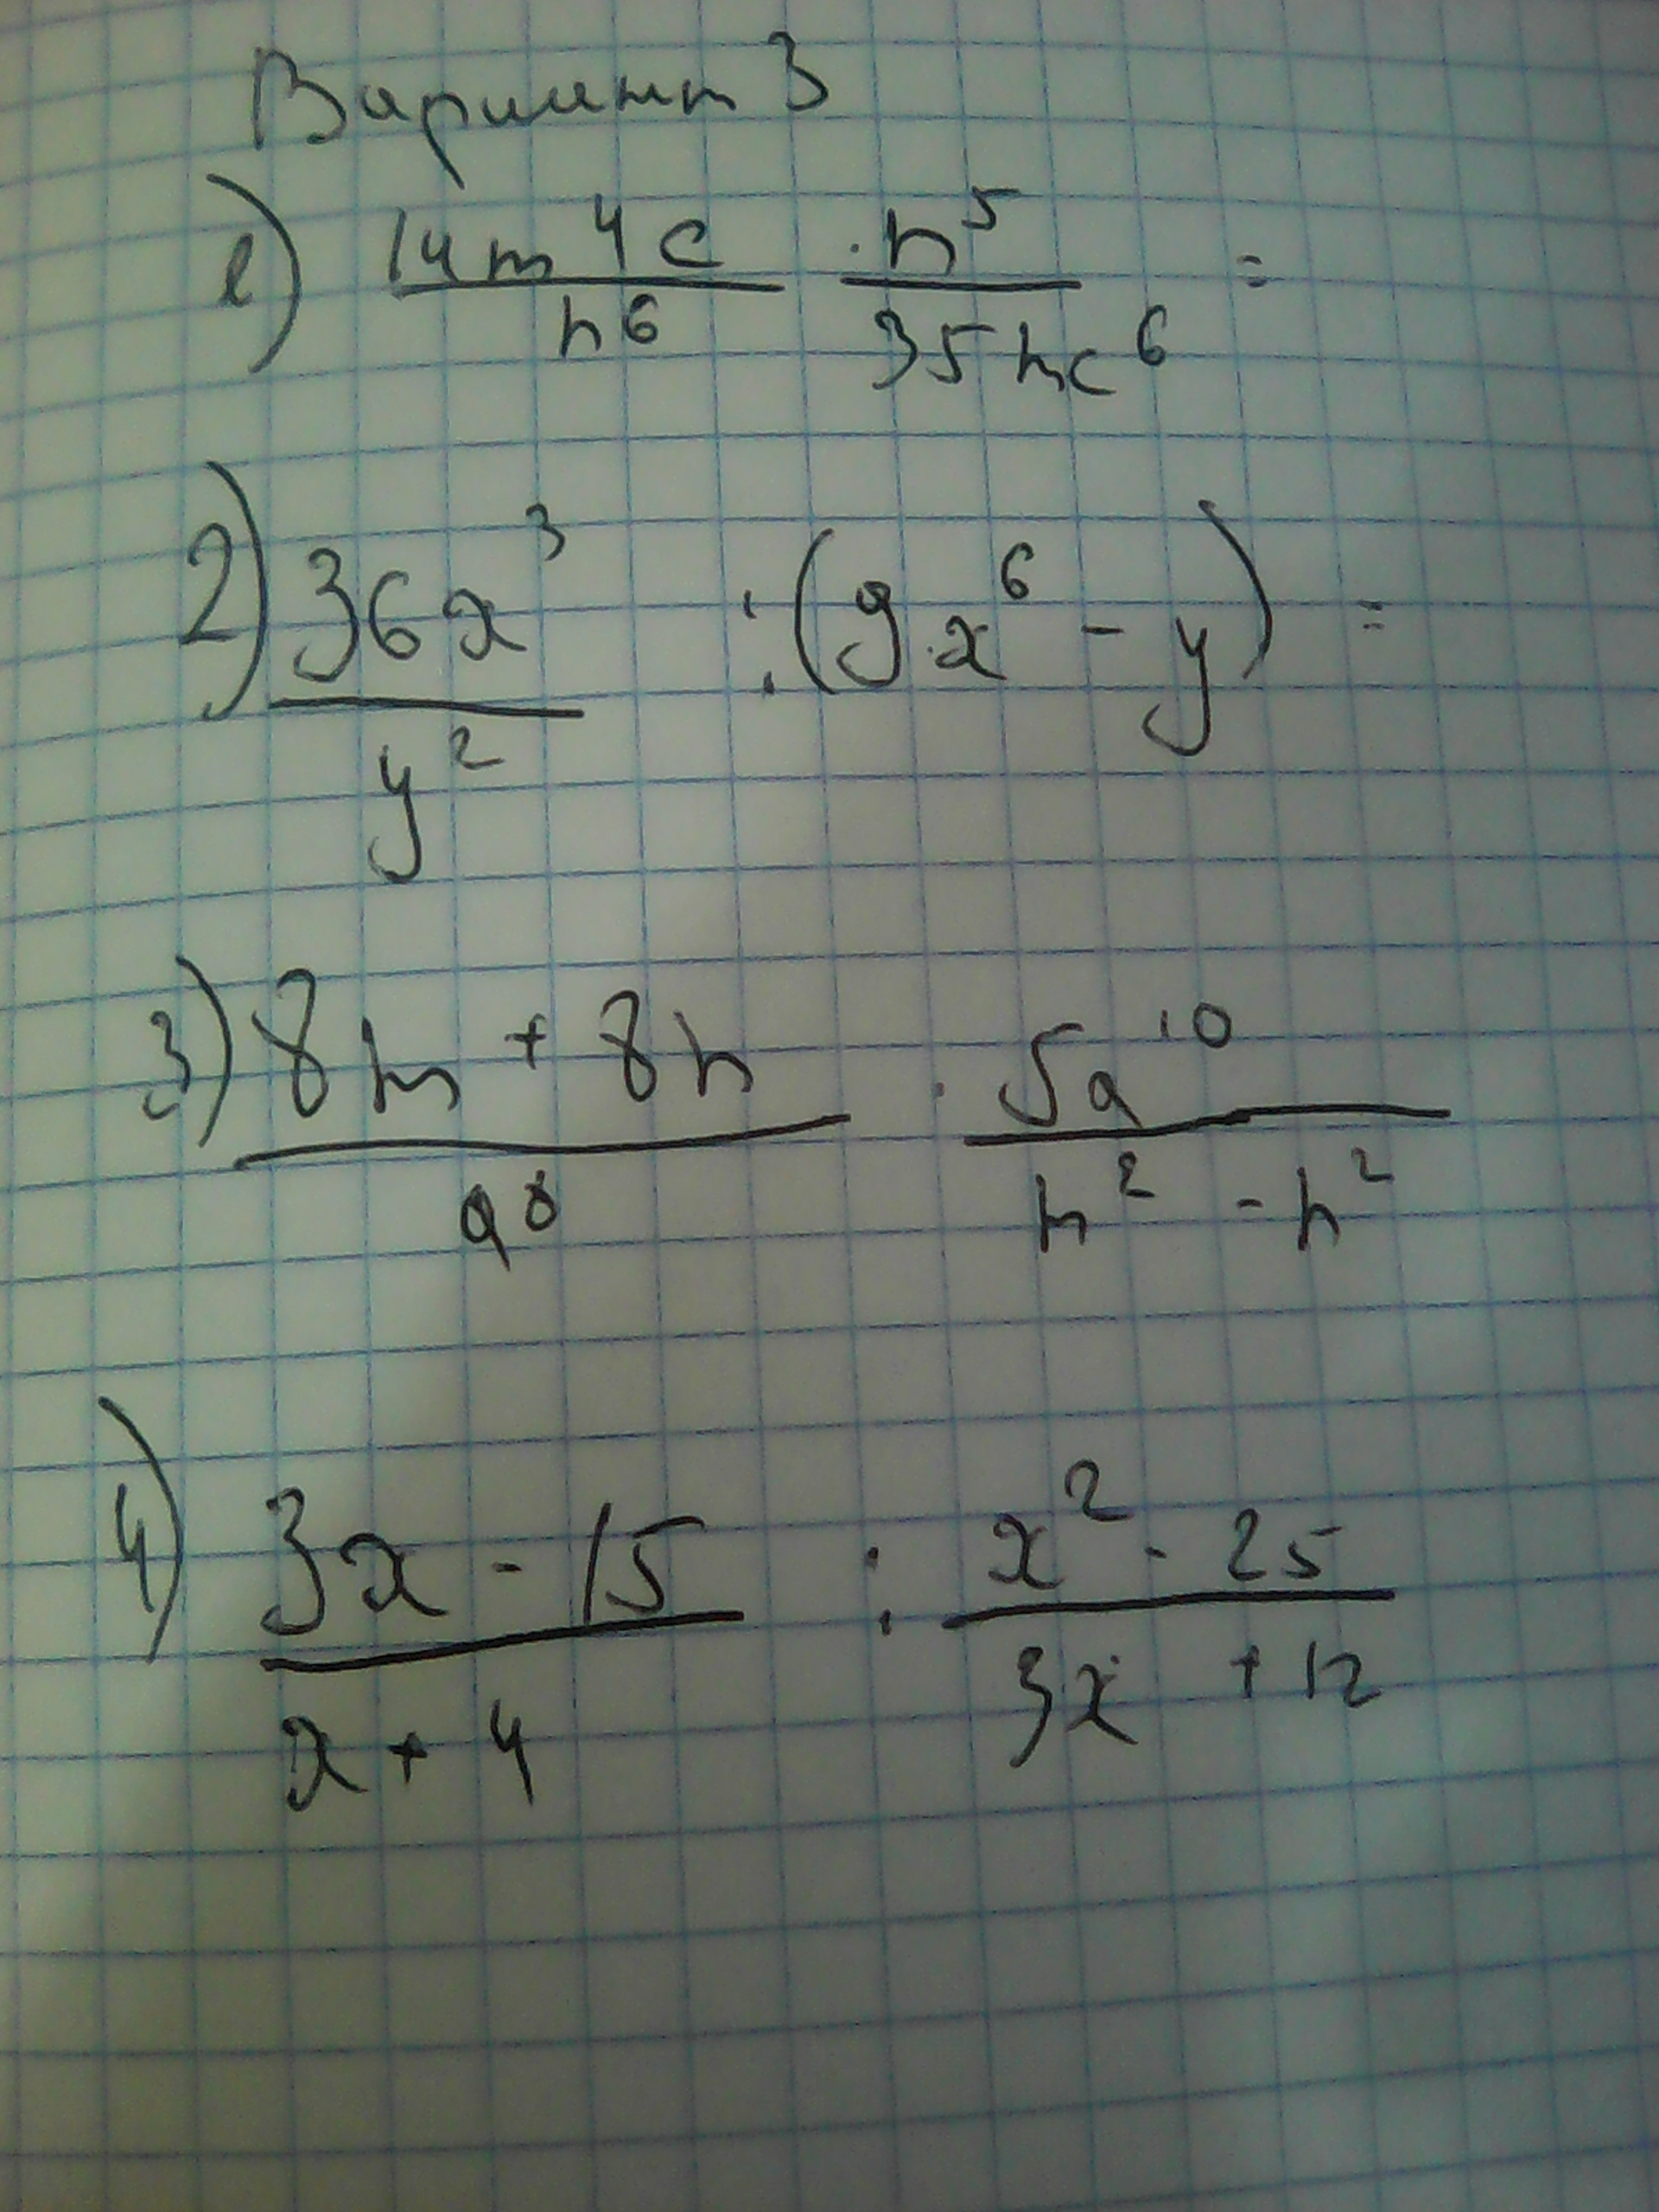 Вариант 3
1) 14m⁴c/n⁶ · n⁵/35mc⁶ =
2) 36x³/y² : (9x⁶ - y) =
3) (8m + 8n)/a⁸ · 5a¹⁰/(m² - n²)
4) (3x - 15)/(x + 4) : (x² - 25)/(3x + 12)